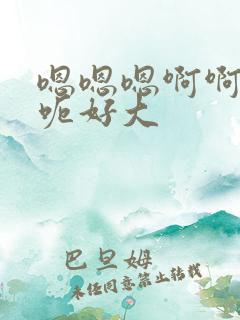 嗯嗯嗯啊啊
呃好大
巴旦姆
未经同意禁止转载